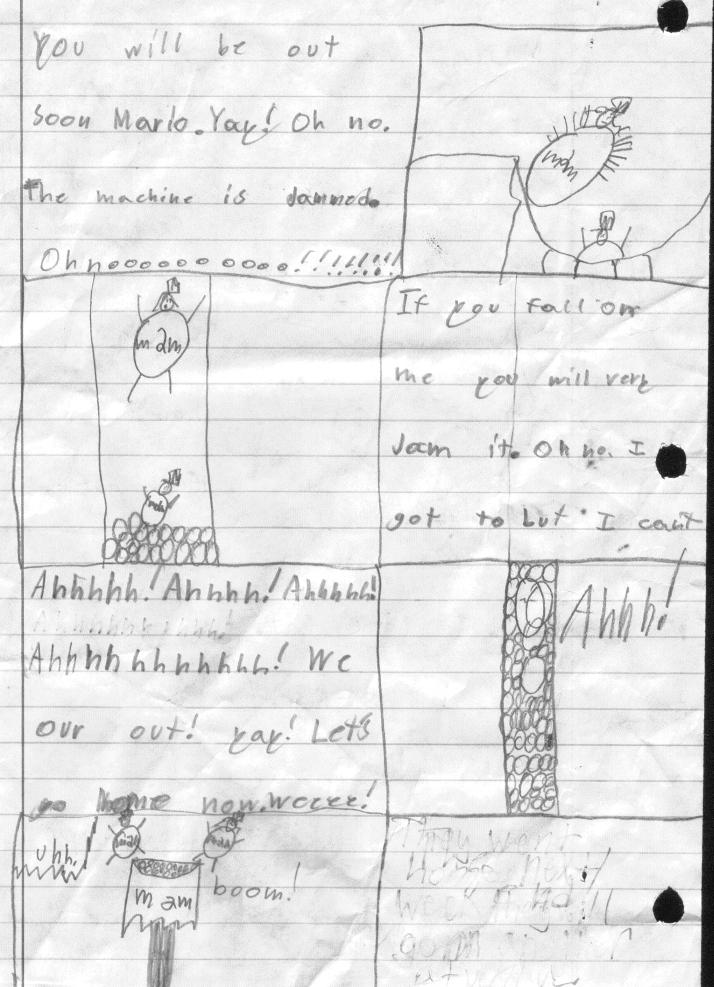 you will be out
soon Mario. Yay! Oh no.
The machine is Jammed.
Oh nooooooooooo!!!!!!!!
mam
mam
mam
If you fall on
me you will very
Jam it. Oh no. I
got to but I can't
Ahhhhh! Ahhhh! Ahhhhh!
Ahhhhhhhhhhh! We
our out! yay! Let's
go home now. weeee!
Ahhh!
uhh.
mam
boom!
They went
Home Next
week